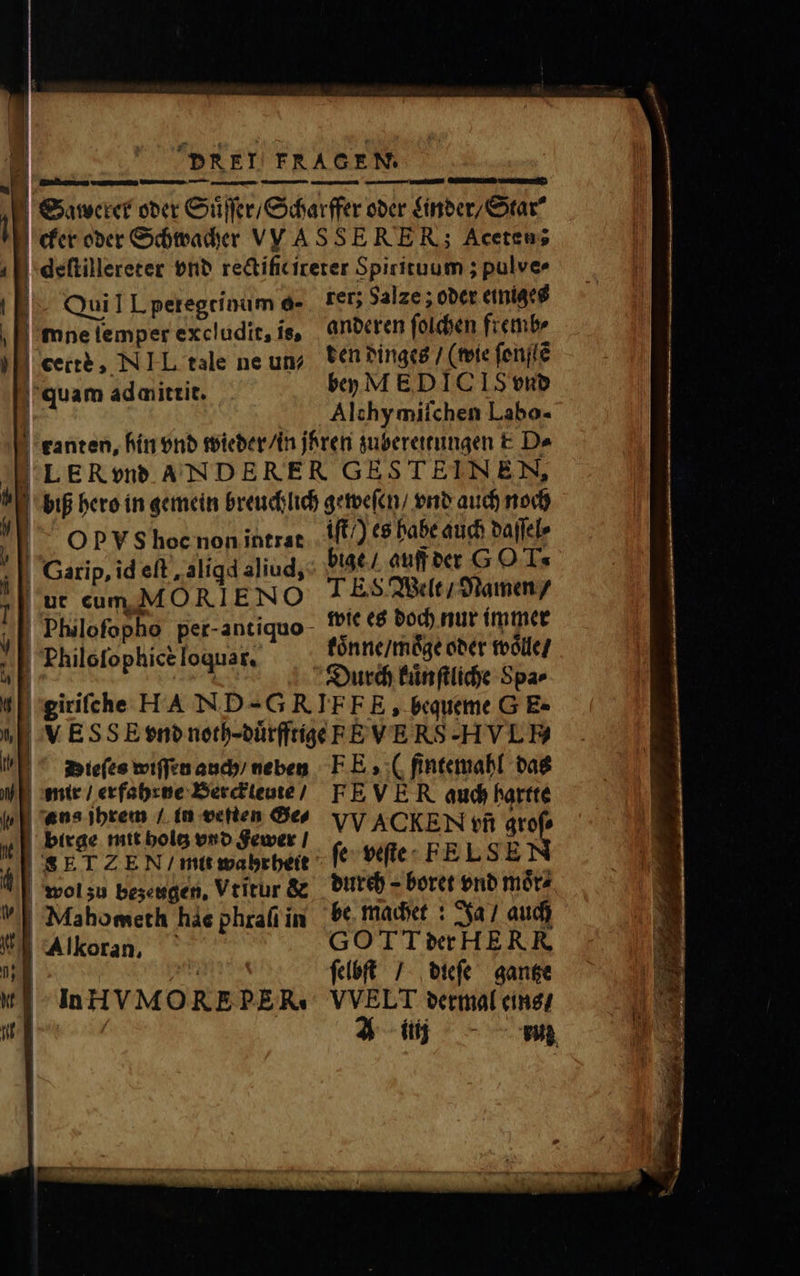 DREI FRAGEN.
Sawerer oder Süſſer/Scharffer oder Linder/Star⸗
cker oder Schwacher VVASSERER; Aceten;
deſtillereter vnd rectificirerer Spirituum; pulve⸗
rer; Salze; oder einiges
anderen ſolchen fremb⸗
den dinges / (wie ſonſtẽ
bey MEDICIS vnd
Alchymiſchen Labo-
Qui IL peregrinum o-
mne ſemper excludit, is,
certè, NIL tale ne un⸗
quam admittit.
ranten, hin vnd wieder/in jhren zubereitungen E De
LER vnd ANDERER GESTEINEN,
biß hero in gemein breuchlich geweſen/ vnd auch noch
iſt/) es habe auch daſſel⸗
bige / auff der GOT⸗
TES Welt / Namen/
wie es doch nur immer
könne/möge oder wölle/
Durch künſtliche Spa⸗
OPVS hoc non intrat
Garip, id eſt, aliqd aliud,
ut cum MORIENO
Philoſopho per-antiquo
Philoſophicè loquar.
giriſche HAND-GRIFFE, bequeme GE⸗
VESSE vnd noth-dürfftige FEVERS-HVLF⸗
FE, ( ſintemahl das
FEVER auch hartte
VVACKEN vñ groſ⸗
ſe veſte FELSEN
durch-boret vnd mör⸗
be machet : Ja / auch
GOTT der HERR
ſelbſt / dieſe gantze
VVELT dermal eins/
Dieſes wiſſen auch/ neben
mir / erfahrne Berckleute /
ans jhrem / in veſten Ge⸗
birge mit holtz vnd Fewer /
SETZEN / mit wahrheit
wol zu bezeugen, Vtitur &
Mahometh hâc phraſi in
Alkoran,
In HVMORE PER⸗
A iiij